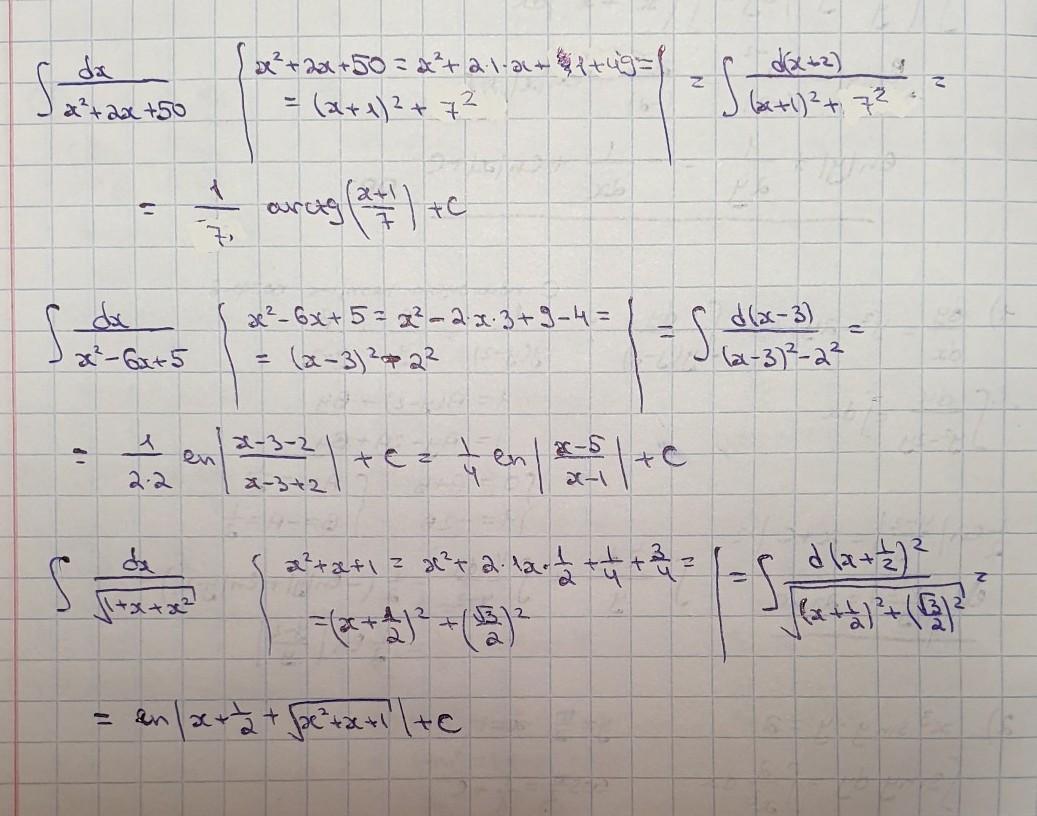 ∫ dx/(x²+2x+50) { x²+2x+50 = x²+2·1·x+1+49= | = ∫ d(x+2)/((x+1)²+7²) =
= (x+1)²+7²
= 1/7 arctg((x+1)/7) + C
∫ dx/(x²-6x+5) { x²-6x+5 = x²-2·x·3+9-4= | = ∫ d(x-3)/((x-3)²-2²) =
= (x-3)²-2²
= 1/(2·2) ln|(x-3-2)/(x-3+2)| + C = 1/4 ln|(x-5)/(x-1)| + C
∫ dx/√(1+x+x²) { x²+x+1 = x²+2·1x·1/2+1/4+3/4= | = ∫ d(x+1/2)²/√((x+1/2)²+(√3/2)²) =
=(x+1/2)²+(√3/2)²
= ln|x+1/2+√(x²+x+1)|+C